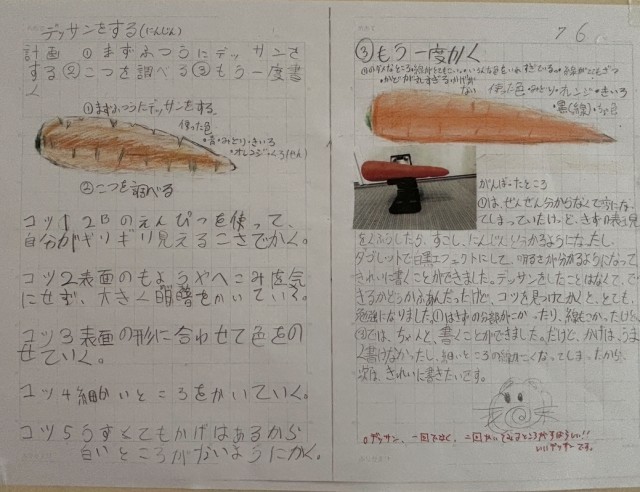 デッサンをする(にんじん)
計画 ①まずふつうにデッサンを
する②こつを調べる③もう一度書
く
①まずふつうにデッサンをする
使った色
・みどり・きいろ
・オレンジ・くろ(せん)
②こつを調べる
コツ1 2Bのえんぴつを使って、
自分がギリギリ見えるこさでかく。
コツ2表面のもようやへこみを気
にせず、大きく明暗をかいていく。
コツ3表面の形に合わせて色をの
せていく。
コツ4細かいところをかいていく。
コツ5うすくてもかげはあるから
白いところがないようにかく。
76
③もう一度かく
使った色・みどり・オレンジ・きいろ
がんばったところ
①は、ぜんぜん分からなくて変にな
ってしまっていたけど、きずの表し方
をくふうしたら、すこし、にんじんと分かるようになったし、
タブレットで白黒エフェクトにして、明るさが分かるようになって
きれいに書くことができました。デッサンをしたことはなくて、で
きるかどうかふあんだったけど、コツを見つけてかくと、とても
勉強になりました。①はきずの分線がこかったり、線もこかったけど、
では、ちゃんと、書くことができました。だけど、かげは、うま
く書けなかったし、細いところの線がこくなってしまったから、
次は、きれいに書きたいです。
デッサン、一回でなく、二回かいてみるところがすばらしい!!
いいデッサンです。